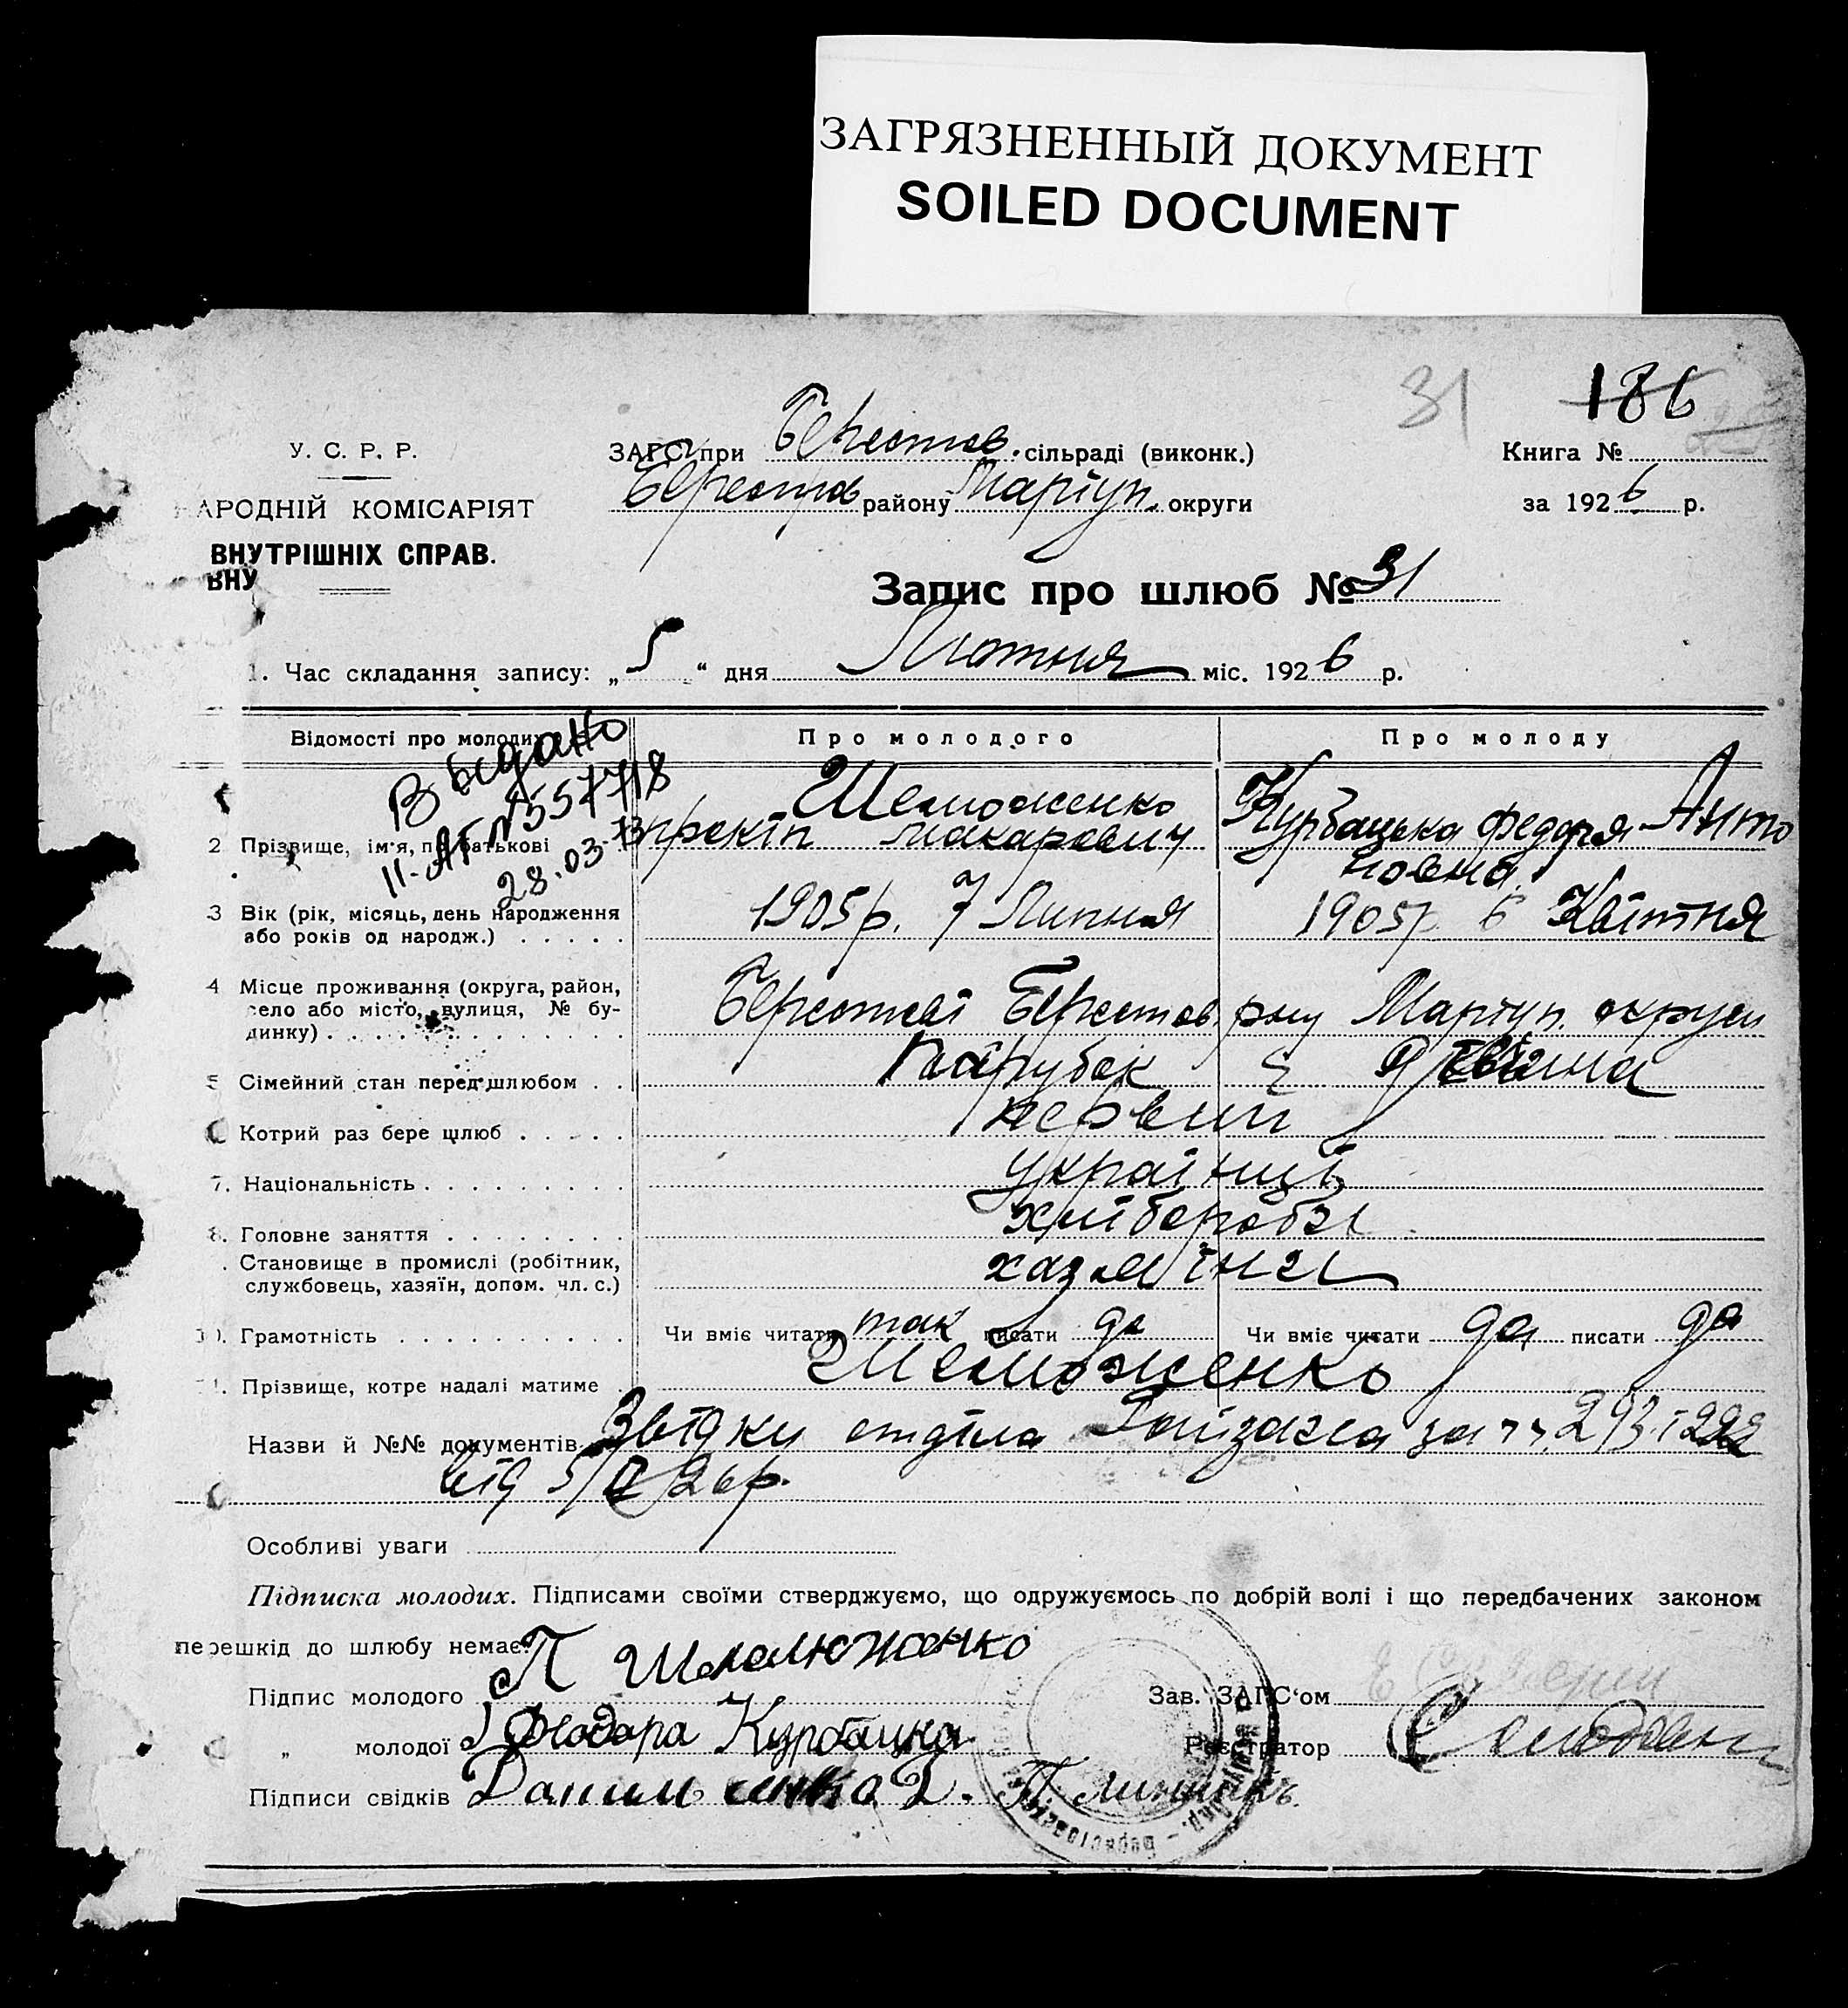 ЗАГРЯЗНЕННЫЙ ДОКУМЕНТ
SOILED DOCUMENT
31 186
У. С. Р. Р. ЗАГС при Берестов. сільраді (виконк.) Книга №
АРОДНІЙ КОМІСАРІЯТ Берестов району Маріуп. округи за 1926 р.
ВНУТРІШНІХ СПРАВ.
ВНУ
Запис про шлюб № 31
1. Час складання запису: „5“ дня Лютня міс. 1926 р.
Відомості про молодих Про молодого Про молоду
Выдано
II-АГ № 557718
28.03-73
2 Прізвище, ім'я, по батькові Шеможенко Прокіп Макарович Курбацька Федора Анто
новна
3 Вік (рік, місяць, день народження
або років од народж.) 1905р. 7 Липня 1905р 6 Квітня
4 Місце проживання (округа, район,
село або місто, вулиця, № бу-
динку) Берестові Берестов. рну Маріуп. округи
5 Сімейний стан перед шлюбом Парубок і Дівчина
Котрий раз бере шлюб первий
7. Національність українці
8. Головне заняття хліборобы
. Становище в промислі (робітник,
службовець, хазяїн, допом. чл. с.) хазяїны
. Грамотність Чи вміє читати так писати да Чи вміє читати да писати да
. Прізвище, котре надалі матиме Шеможенко
Назви й №№ документів Звідки отділа за 293 і 292
від 5/II 26р.
Особливі уваги
Підписка молодих. Підписами своїми стверджуємо, що одружуємось по добрій волі і що передбачених законом
перешкід до шлюбу немає.
Підпис молодого П Шемюженко Зав. ЗАГС'ом
„ молодої Феодора Курбацка Реєстратор
Підписи свідків Данильченко З. П.